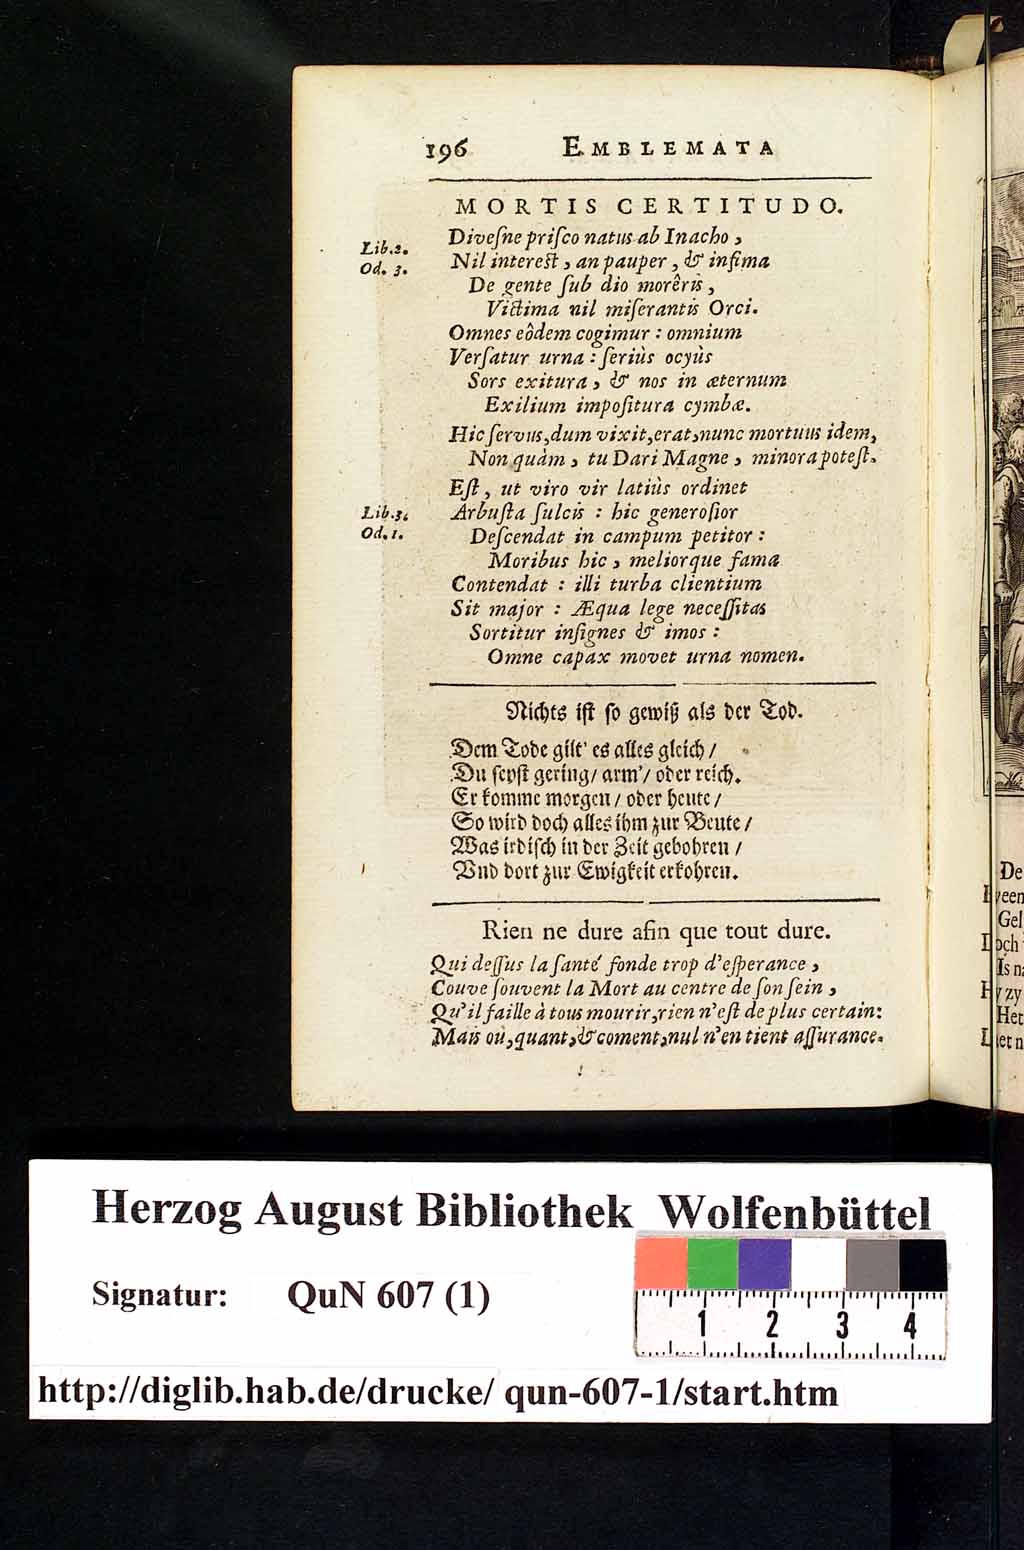 196 EMBLEMATA
MORTIS CERTITUDO.
Lib. 2.
Od. 3.
Diveſne priſco natus ab Inacho,
Nil intereſt, an pauper, & infima
De gente ſub dio morêris,
Victima nil miſerantis Orci.
Omnes eôdem cogimur: omnium
Verſatur urna: ſeriùs ocyùs
Sors exitura, & nos in æternum
Exilium impoſitura cymbæ.
Hic ſervus, dum vixit, erat, nunc mortuus idem,
Non quàm, tu Dari Magne, minora poteſt.
Lib. 3.
Od. 1.
Eſt, ut viro vir latiùs ordinet
Arbuſta ſulcis: hic generoſior
Deſcendat in campum petitor:
Moribus hic, meliorque fama
Contendat: illi turba clientium
Sit major: Æqua lege neceſſitas
Sortitur inſignes & imos:
Omne capax movet urna nomen.
Nichts iſt ſo gewiß als der Tod.
Dem Tode gilt' es alles gleich /
Du ſeyſt gering / arm' / oder reich.
Er komme morgen / oder heute /
So wird doch alles ihm zur Beute /
Was irdiſch in der Zeit gebohren /
Vnd dort zur Ewigkeit erkohren.
Rien ne dure afin que tout dure.
Qui deſſus la ſanté fonde trop d'eſperance,
Couve ſouvent la Mort au centre de ſon ſein,
Qu'il faille à tous mourir, rien n'eſt de plus certain:
Mais où, quant, & coment, nul n'en tient aſſurance.
De
veen
Gel
och
Is n
y zy
Het
et n
Herzog August Bibliothek Wolfenbüttel
Signatur: QuN 607 (1)
1 2 3 4
http://diglib.hab.de/drucke/ qun-607-1/start.htm